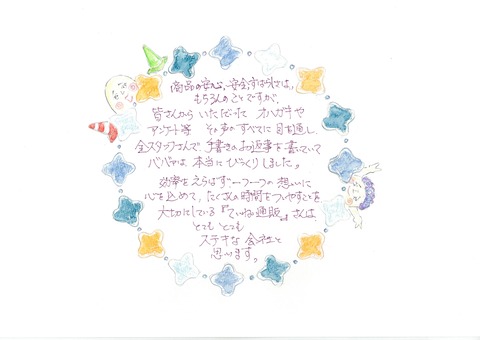 商品の安心、安全、すばらしさは、
もちろんのことですが、
皆さんから いただいた オハガキや
アンケート等 その声のすべてに 目を通し、
全スタッフさんで 手書きのお返事を書いていて
ババァは 本当に びっくりしました。
効率をえらばず 一つ一つの 想いに
心を込めて、たくさんの時間を ついやすことを
大切にしている『ていねい通販』さんは
とても とても
ステキな 会社と
思います。